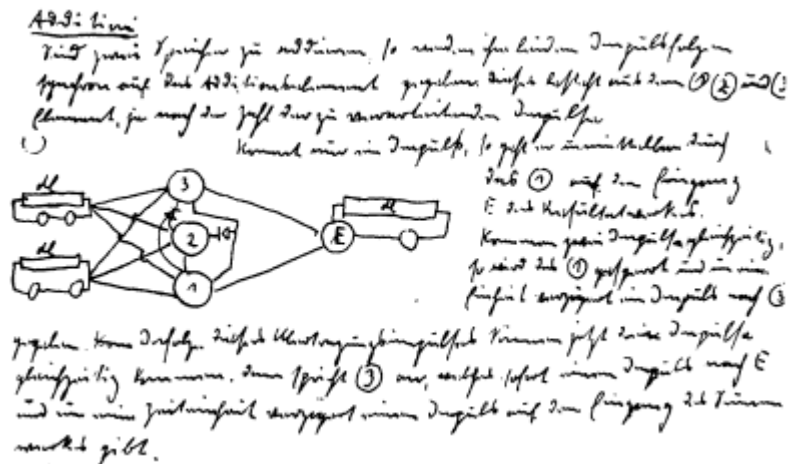 Addition
Sind zwei Speicher zu addieren, so werden ihre beiden Impulsfolgen
synchron auf das Additionselement gegeben. Dieses besteht aus dem ① ② und
Element, je nach der Zahl der zu verarbeitenden Impulse
Kommt nur ein Impuls, so geht er unmittelbar durch
das ① auf den Eingang
E des Resultatwerkes.
Kommen zwei Impulse gleichzeitig,
so wird das ① gesperrt und um eine
Einheit verzögert ein Impuls nach ③
dl
3
dl
E
2
dl
1
gegeben. dieses Übertragungsimpulses können jetzt drei Impulse
gleichzeitig kommen. Dann spricht ③ an, welches sofort einen Impuls nach E
und um eine Zeiteinheit verzögert einen Impuls auf den Eingang des
werks gibt.